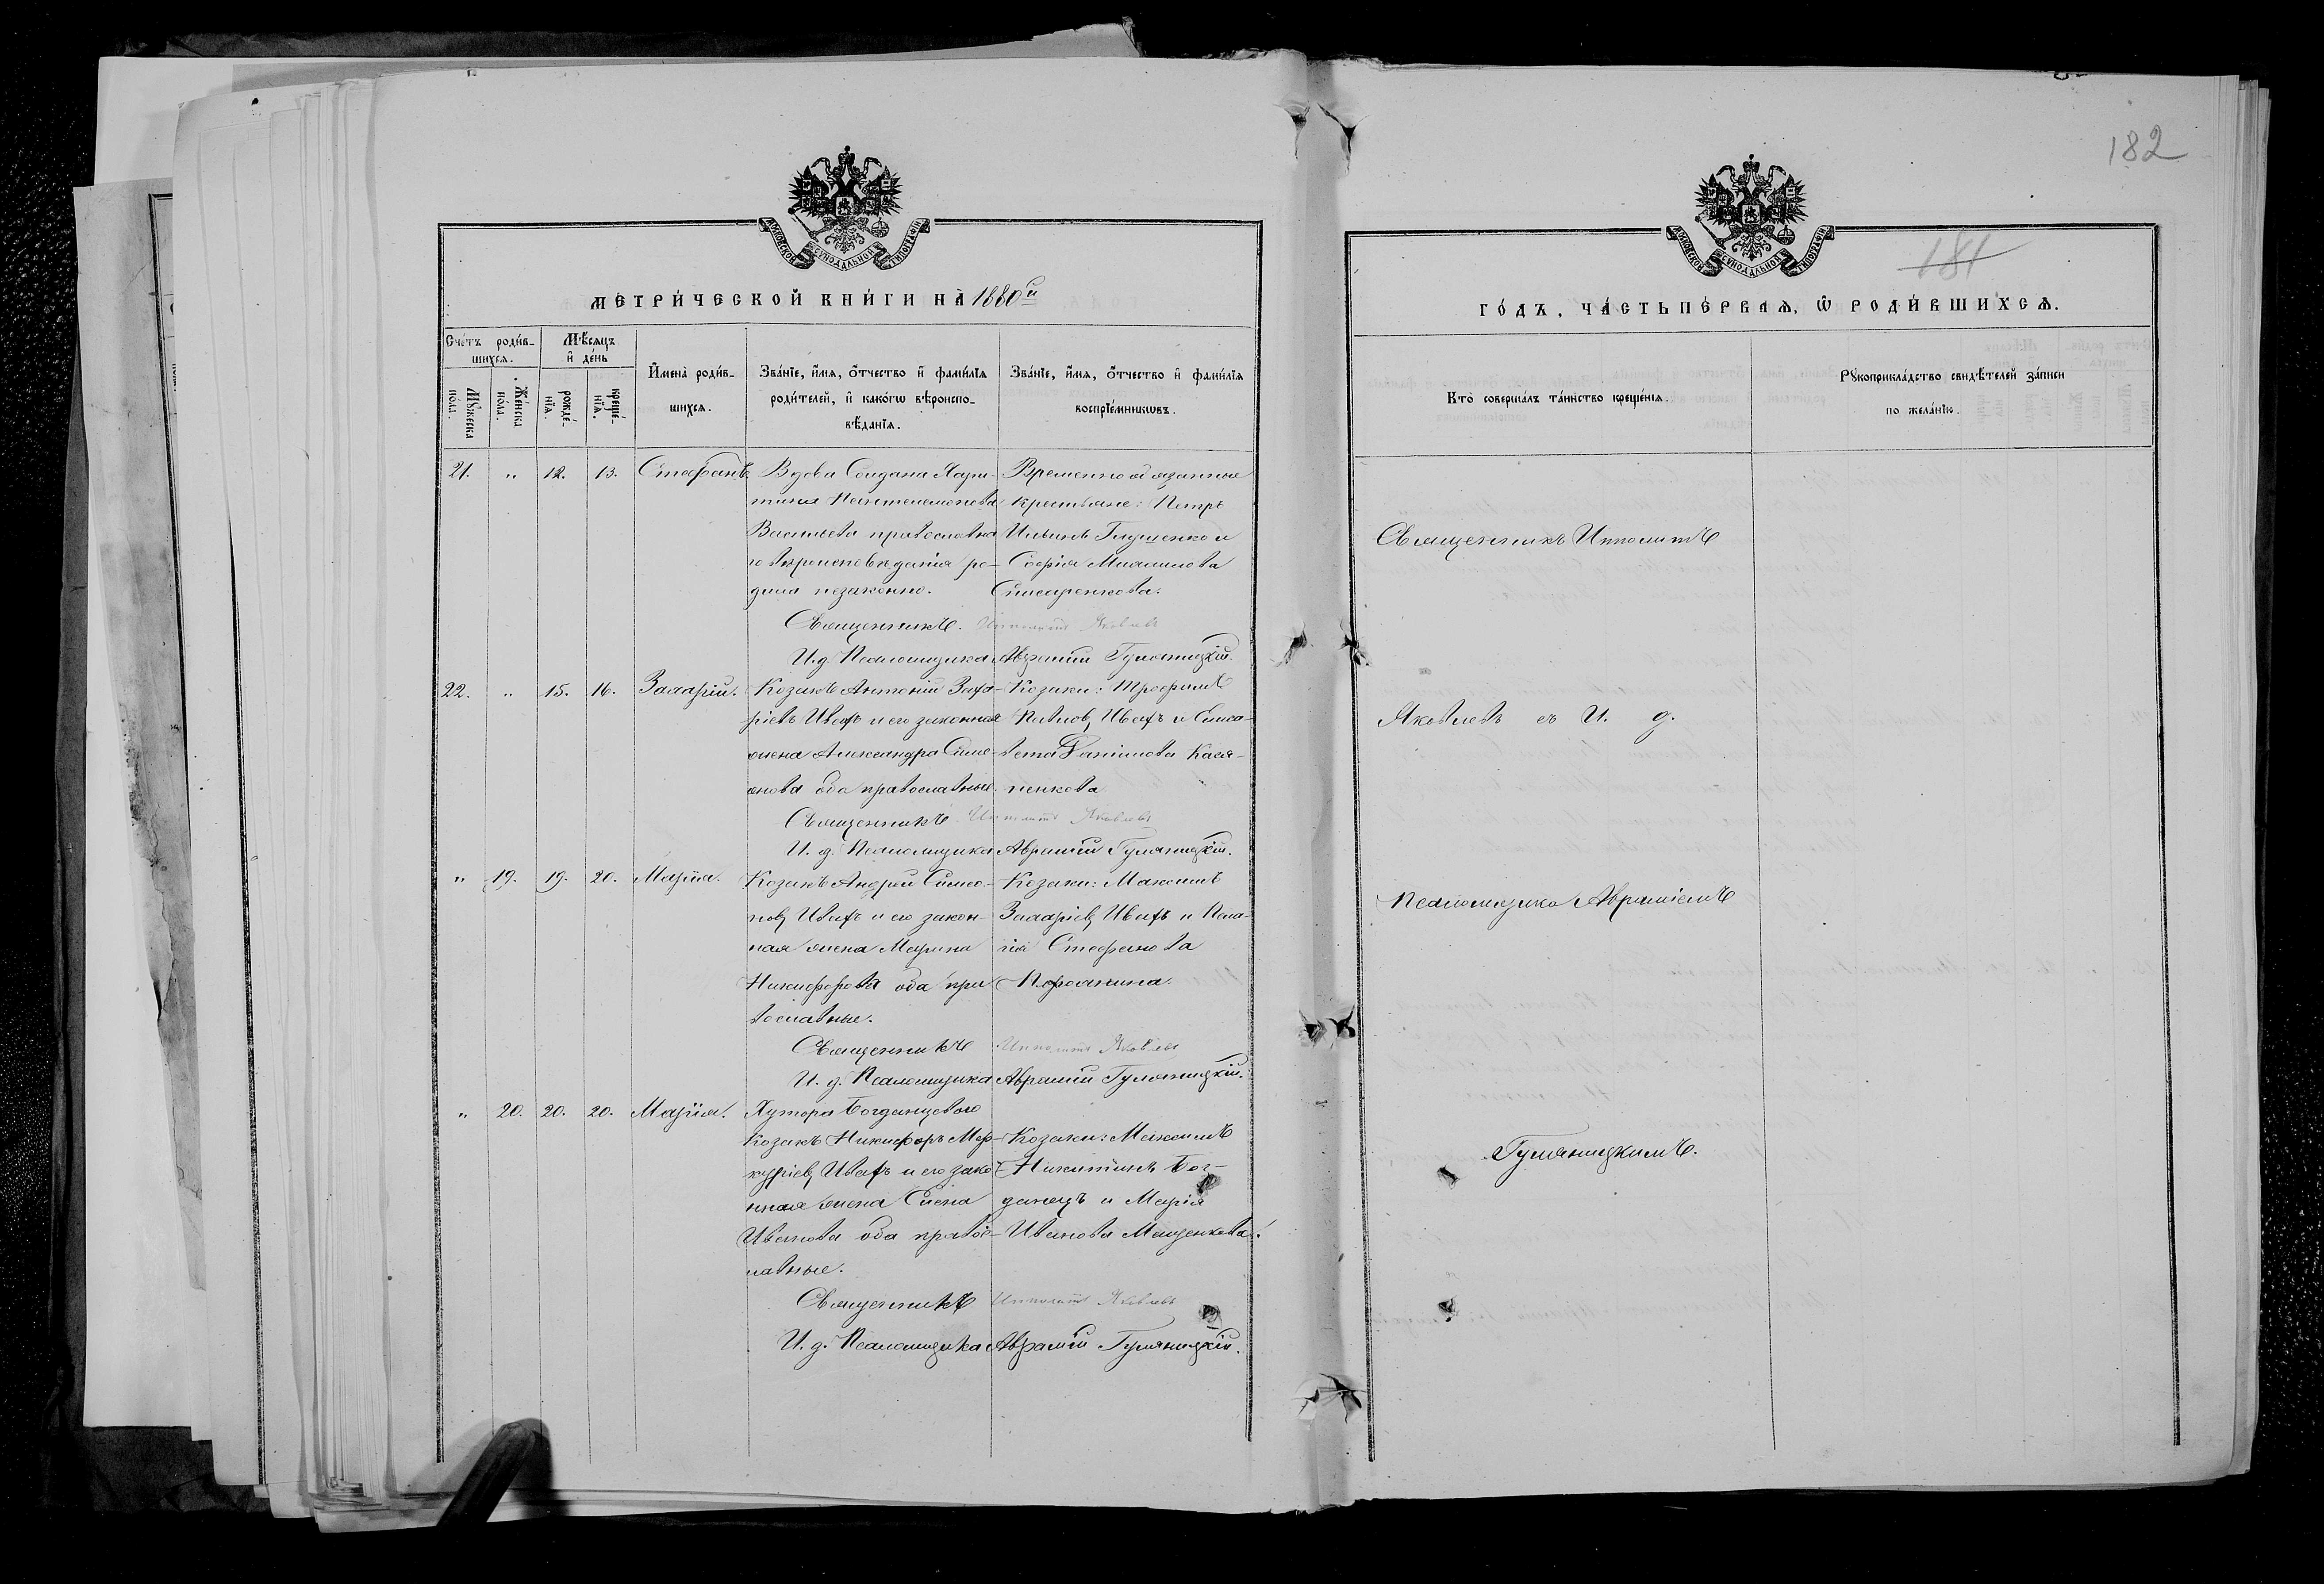 182
181
МЕТРИЧЕСКОЙ КНИГИ НА 1880й
ГОДЪ, ЧАСТЬ ПЕРВАЯ, Ѿ РОДИВШИХСЯ.
Счетъ родив-
шихся.
Мужеска
пола.
Женска
пола.
Мѣсяцъ
и день
рожде-
нїя.
креще-
нїя.
Имена родив-
шихся.
Званїе, имя, отчество и фамилїя
родителей, и какогѡ вѣроиспо-
вѣданїя.
Званїе, имя, отчество и фамилїя
воспрїемниковъ.
Кто совершалъ таинство крещенїя.
Рукоприкладство свидѣтелей записи
по желанїю.
21. " 12. 13. Стефанъ.
Вдова Солдатка Хари-
тина Пантелемонова
Васильева православна
го вѣроисповѣданія ро-
дила незаконно.
Временно обязанные
крестьяне: Петръ
Ильинъ Глущенко и
Софія Михаилова
Слисаренкова.
Священникъ Ипполитъ Яковлевъ
И. д. Псаломщика Аврамій Гуляницкій.
22. " 15. 16. Захарій.
Козакъ Антоній Заха-
ріевъ Ивахъ и его законная
жена Александра Симе-
онова оба православные.
Козаки: Трофимъ
Павловъ Ивахъ и Елиса-
вета Даніилова Кася-
ненкова
Священникъ Ипполитъ Яковлевъ
И. д. Псаломщика Аврамій Гуляницкій.
" 19. 19. 20. Марія.
Козакъ Андрей Симео-
новъ Ивахъ и его закон-
ная жена Марина
Никифорова оба пра
вославные.
Козаки: Максимъ
Захаріевъ Ивахъ и Пела-
гія Стефанова
Священникъ Ипполитъ Яковлевъ
И. д. Псаломщика Аврамій Гуляницкій.
" 20. 20. 20. Марія.
Хутора Богданцевого
Козакъ Никифоръ Мер-
куріевъ Ивахъ и его зако
нная жена Елена
Иванова оба правос-
лавные.
Козаки: Максимъ
Никитинъ Бог-
данецъ и Марія
Иванова Мащенкова.
Священникъ Ипполитъ Яковлевъ
И. д. Псаломщика Аврамій Гуляницкій.
Священникъ Ипполитъ
Яковлевъ съ И. д.
Псаломщика Авраміемъ
Гуляницкимъ.